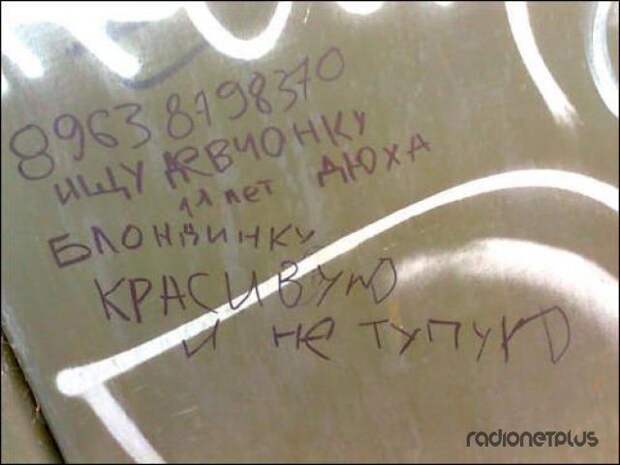 8963 8798370
ИЩУ ДЕВЧОНКУ
11 лет ДЮХА
БЛОНДИНКУ
КРАСИВУЮ
И НЕ ТУПУЮ
radionetplus